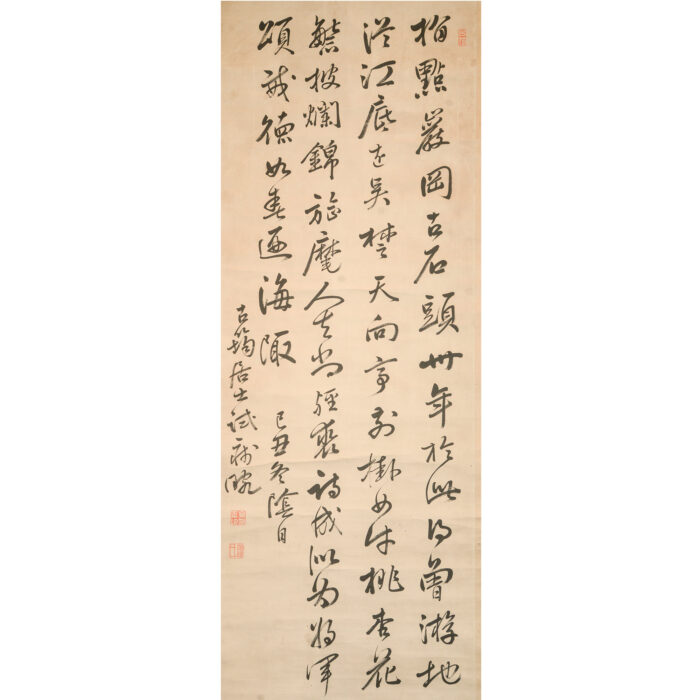 指點巖岡古石頭卅年於此得曾游地
從江底走吳楚天向亭前掛女牛桃杏花
繁披爛錦旌麾人去尚輕裘詩成似為將軍
頌武德如春遍海陬
己丑冬陰日
古筠居士試